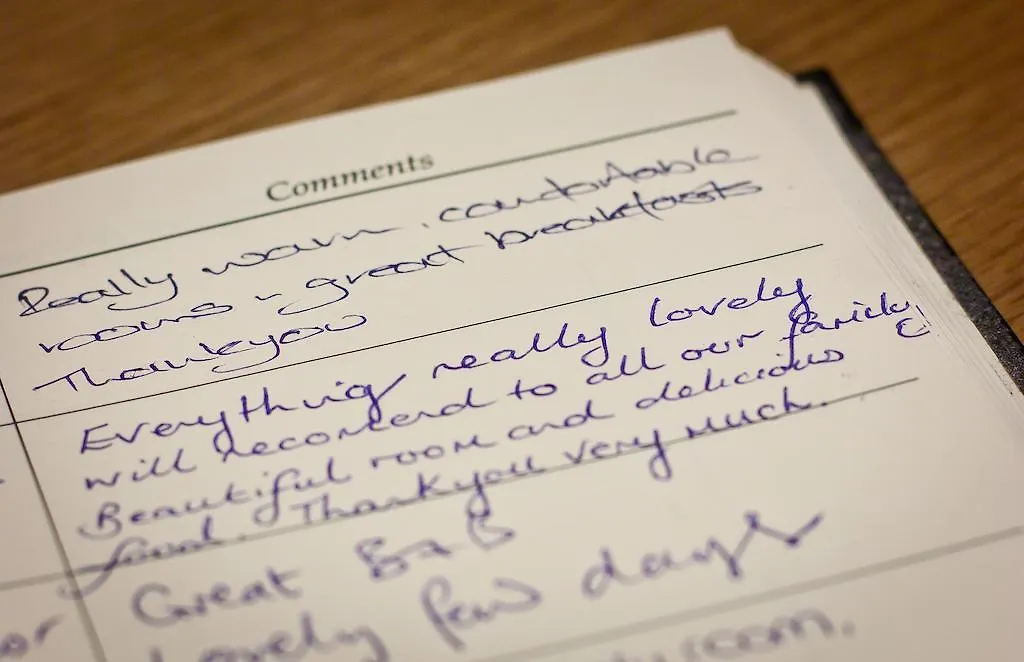 Comments
Really warm, comfortable
rooms - great breakfasts
Thankyou
Everything really lovely
will recomend to all our family &
Beautiful room and delicious
food. Thankyou very much.
Great B&B
or Lovely few days
room.